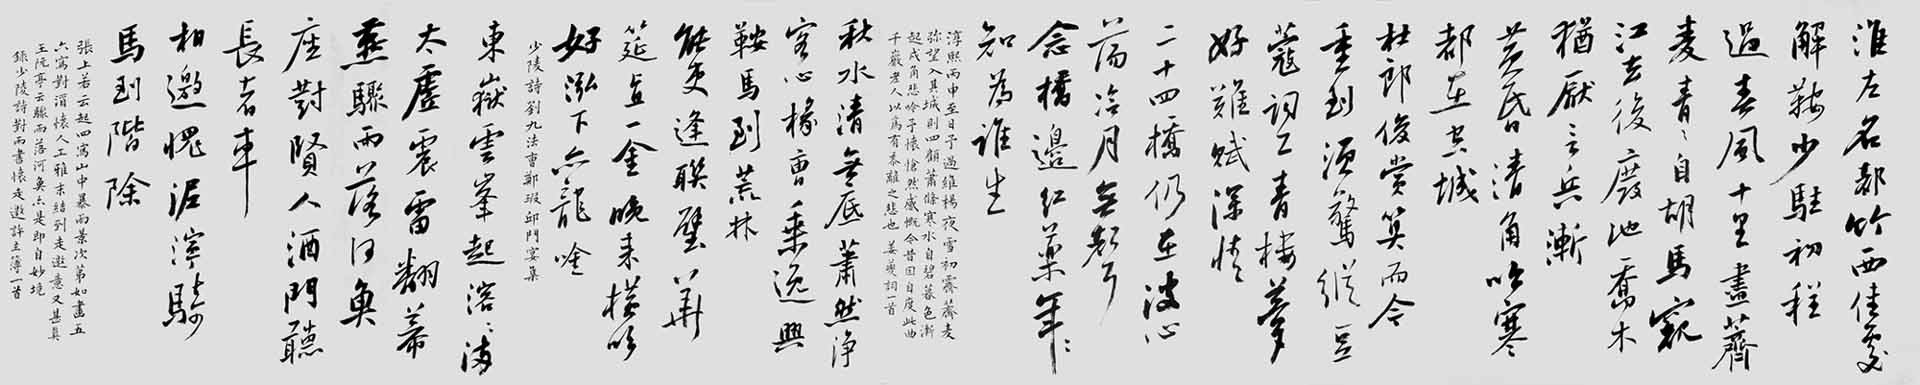 淮左名都竹西佳處
解鞍少駐初程
過春風十里盡薺
麥青〻自胡馬窺
江去後廢池喬木
猶厭言兵漸
黃昏清角吹寒
都在空城
杜郎俊賞算而今
重到須驚縱豆
蔻詞工青樓夢
好難賦深情
二十四橋仍在波心
蕩冷月無聲
念橋邊紅藥年〻
知為誰生
淳熙丙申至日予過維楊夜雪初霽薺麥
彌望入其城則四顧蕭條寒水自碧暮色漸
起戍角悲吟予懷愴然感慨今昔因自度此曲
千巖老人以為有黍離之悲也 姜夔詞一首
秋水清無底蕭然淨
客心掾曹乘逸興
鞍馬到荒林
能吏逢聯璧華
筵直一金晚來橫吹
好泓下亦龍吟
少陵詩劉九法曹鄭瑕邱門宴集
東嶽雲峯起溶〻滿
太虛震雷翻幕
燕驟雨落河魚
座對賢人酒門聽
長者車
相邀愧泥濘騎
馬到階除
張上若云起四寫山中暴雨景次第如畫五
六寫對酒懷人工雅末結到走邀意又甚真
王阮亭云驟雨落河魚亦是即自妙境
錄少陵詩對雨書懷走邀許主簿一首